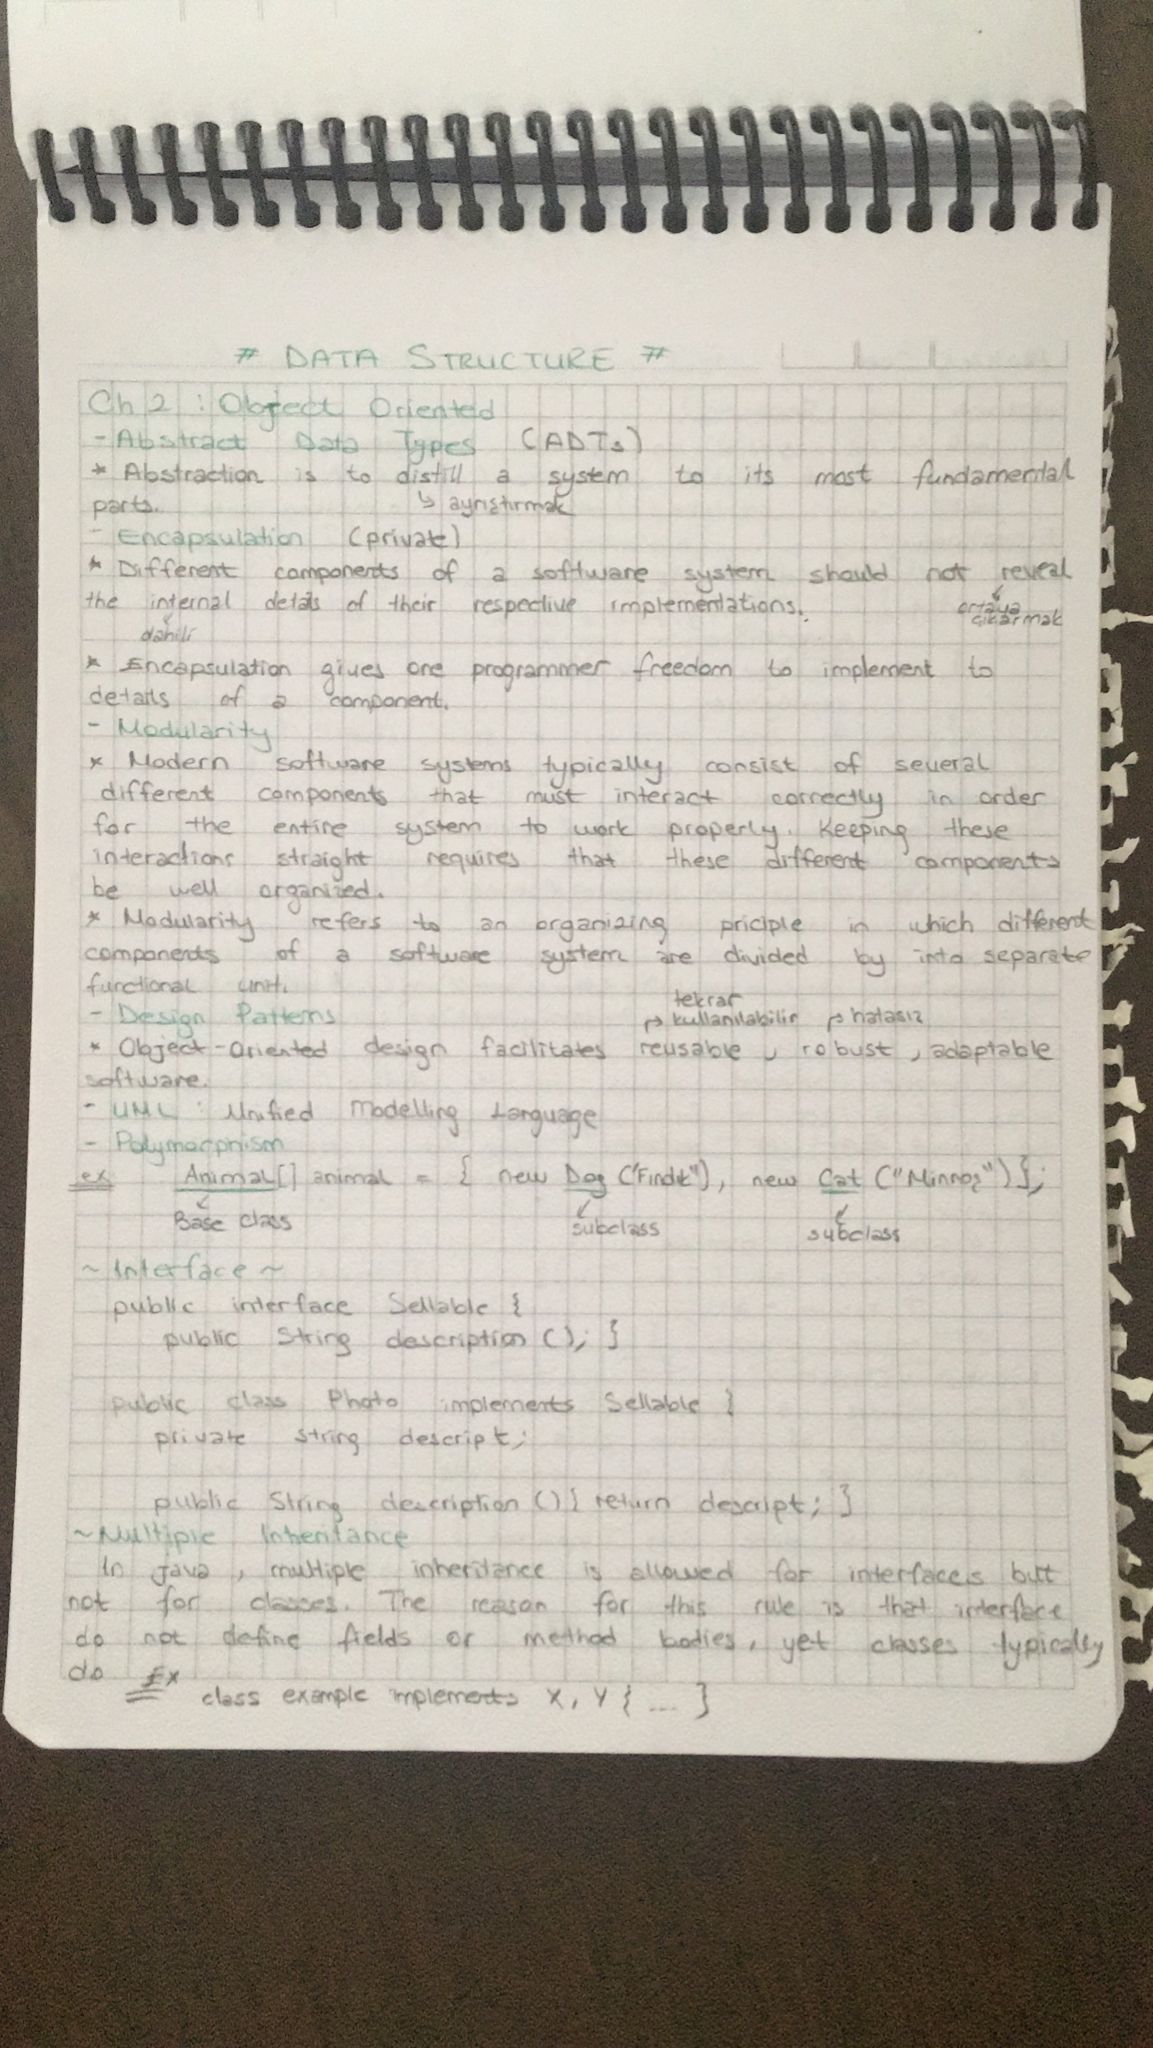 # DATA STRUCTURE #
Ch 2 : Object Oriented
- Abstract Data Types (ADTs)
* Abstraction is to distill a system to its most fundamental
parts. ↳ ayrıştırmak
- Encapsulation (private)
* Different components of a software system should not reveal
the internal details of their respective implementations. ortaya çıkarmak
dahili
* Encapsulation gives one programmer freedom to implement to
details of a component.
- Modularity
* Modern software systems typically consist of several
different components that must interact correctly in order
for the entire system to work properly. Keeping these
interactions straight requires that these different components
be well organized.
* Modularity refers to an organizing priciple in which different
components of a software system are divided by into separate
functional unit.
tekrar
- Design Patterns ↱ kullanılabilir ↱ hatasız
* Object-Oriented design facilitates reusable, robust, adaptable
software.
- UML : Unified Modelling Language
- Polymorphism
ex Animal[] animal = { new Dog ("Fındık"), new Cat ("Minnoş") };
Base class subclass subclass
~ Interface ~
public interface Sellable {
public String description (); }
public class Photo implements Sellable {
private String descript;
public String description () { return descript; }
~ Multiple Inheritance
In java, multiple inheritance is allowed for interfaces but
not for classes. The reason for this rule is that interface
do not define fields or method bodies, yet classes typically
do Ex
class example implements X, Y { ... }